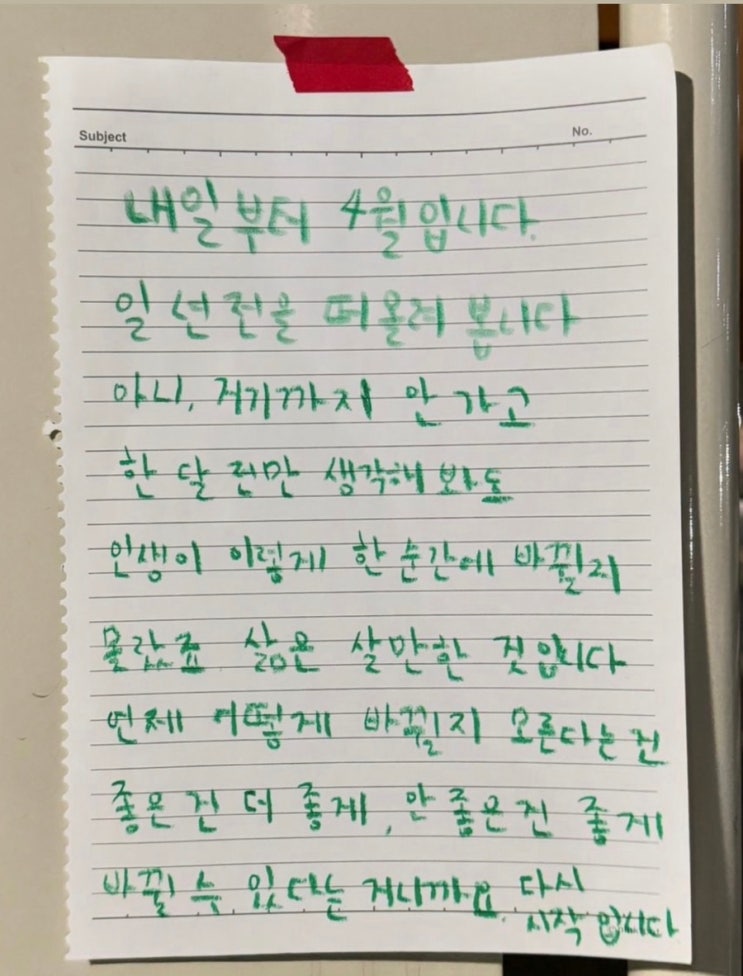 Subject No.
내일부터 4월입니다.
일 년 전을 떠올려 봅니다
아니, 거기까지 안 가고
한 달 전만 생각해 봐도
인생이 이렇게 한 순간에 바뀔지
몰랐죠. 삶은 살만한 것입니다
언제 어떻게 바뀔지 모른다는 건
좋은 건 더 좋게, 안 좋은 건 좋게
바뀔 수 있다는 거니까요. 다시
시작입니다